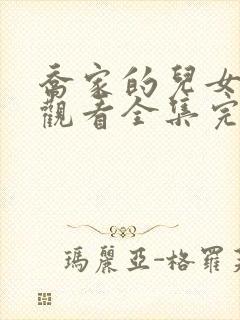 喬家的兒女
觀看全集完
瑪麗亞-格羅